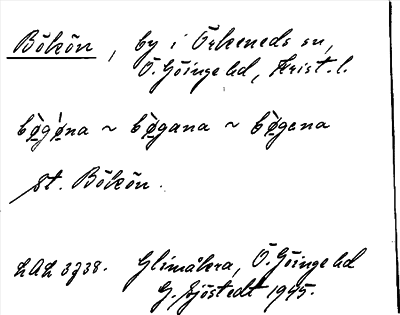 Bökön, by i Örkeneds sn,
Ö. Göinge hd, Krist. l.
bø̀gø̀na ~ bø̀gana ~ bø̀gena
st. Bökön.
LAL 3738. Glimåkra, Ö. Göinge hd
G. Sjöstedt 1945.